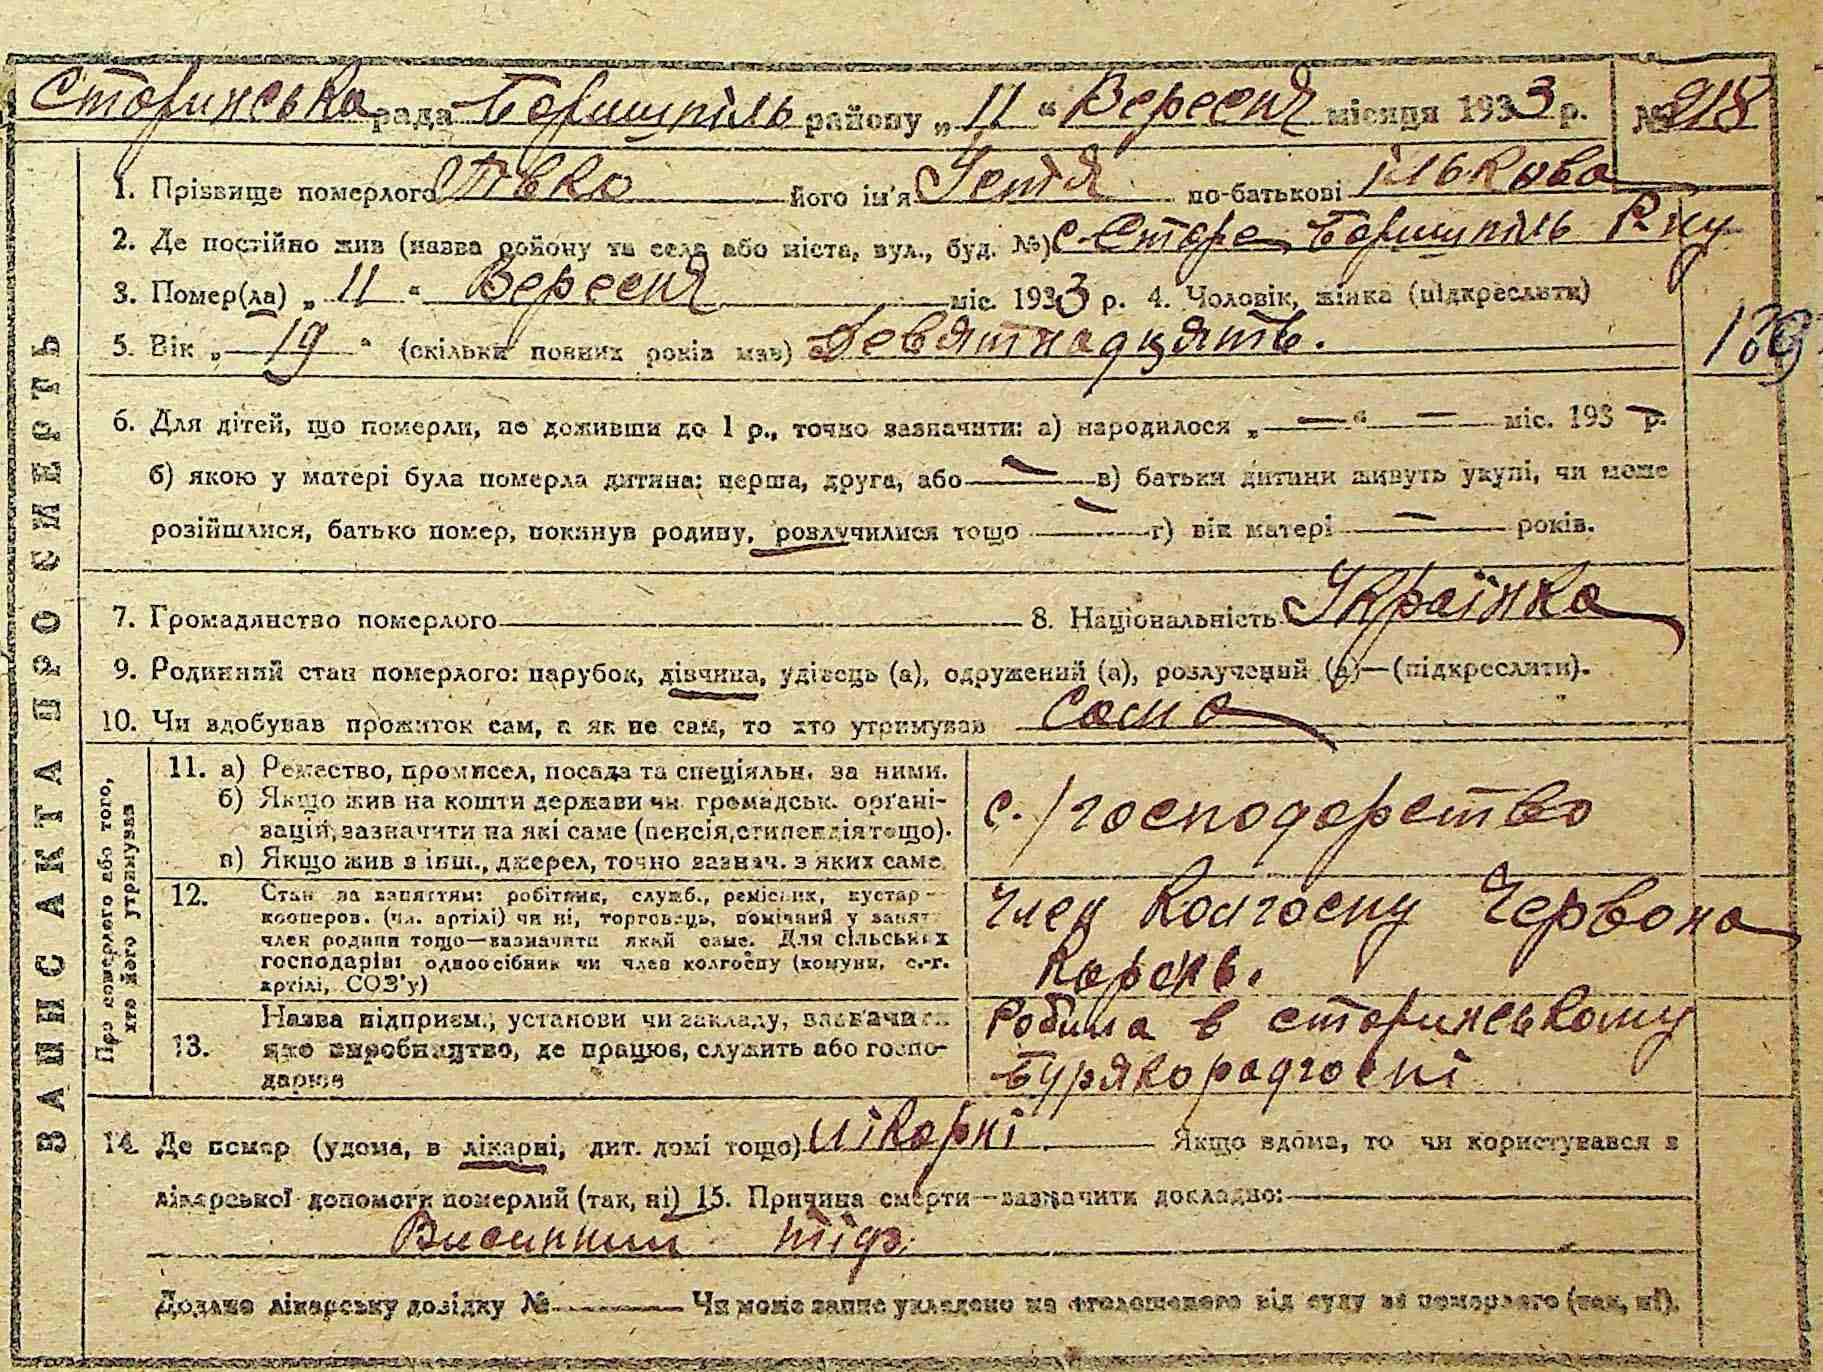 Старинська рада Боришпіль району „ 11 “ Вересня місяця 1933 р. № 218
1. Прізвище померлого Півко його ім'я Устя по-батькові Ількова
2. Де постійно жив (назва району та села або міста, вул., буд. №) с. Старе Боришпіль Р-ну
3. Помер(ла) „ 11 “ Вересня міс. 1933 р. 4. Чоловік, жінка (підкреслити)
5. Вік „ 19 “ (скільки повних років мав) Девятнадцять.
139
6. Для дітей, що померли, не доживши до 1 р., точно зазначити: а) народилося „ — “ — міс. 193 — р.
б) якою у матері була померла дитина: перша, друга, або — в) батьки дитини живуть укупі, чи може
розійшлися, батько помер, покинув родину, розлучилися тощо — г) вік матері — років.
7. Громадянство померлого 8. Національність Українка
9. Родинний стан померлого: парубок, дівчина, удівець (а), одружений (а), розлучений (а)—(підкреслити).
10. Чи здобував прожиток сам, а як не сам, то хто утримував Сама
ЗАПИС АКТА ПРО СМЕРТЬ
Про померлого або того,
хто його утримував
11. а) Ремество, промисел, посада та спеціяльн. за ними.
б) Якщо жив на кошти держави чи громадськ. органі-
зацій, зазначити на які саме (пенсія, стипендія тощо).
в) Якщо жив з інш., джерел, точно зазнач. з яких саме
с./господарство
12. Стан за заняттям: робітник, служб., ремісник, кустар—
кооперов. (чл. артілі) чи ні, торговець, помічний у занят.
член родини тощо—зазначити який саме. Для сільських
господарів: одноосібник чи член колгоспу (комуни, с.-г.
артілі, СОЗ'у)
Член колгоспу Червона
Корень.
13. Назва підприєм., установи чи закладу, зазначати
яке виробництво, де працює, служить або госпо-
дарює
Робила в старинському
Бурякорадгоспі
14. Де помер (удома, в лікарні, дит. домі тощо) лікарні Якщо вдома, то чи користувався з
лікарської допомоги померлий (так, ні) 15. Причина смерти—зазначити докладно:
Висипний тіф.
Додано лікарську довідку № Чи може запис укладено на оголошеного від суду за померлого (так, ні).